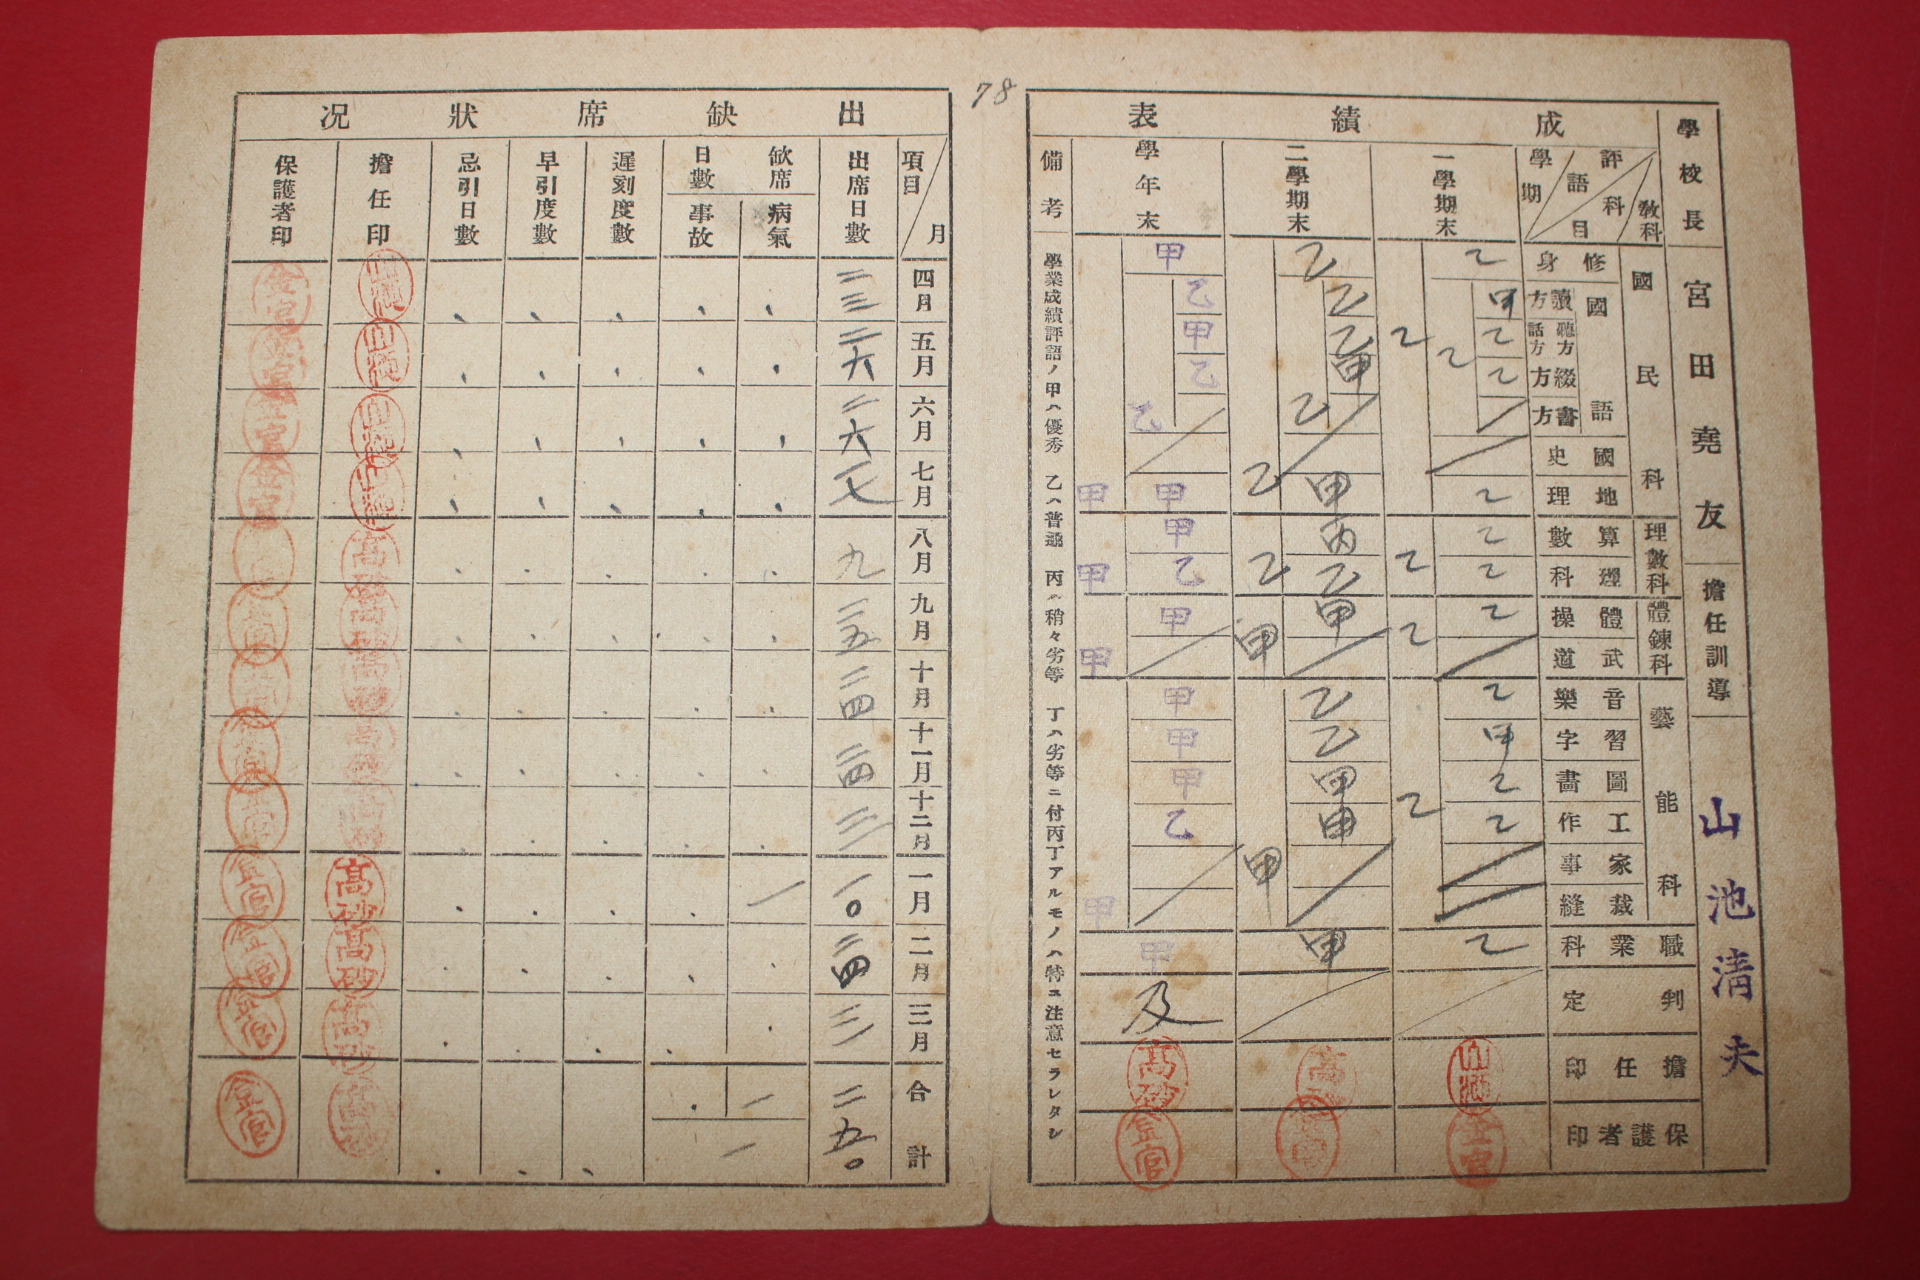 78
成績表
學校長 宮田堯友
擔任訓導 山池清夫
教科 科目 評語 學期
一學期末
二學期末
學年末
備考
國民科
修身 乙 乙 甲
國語
讀方 甲 乙 乙
聽方 話方 乙 乙 甲
綴方 乙 甲 乙
書方
乙 乙 乙
國史
地理 乙 甲 甲
乙 乙 甲
理數科
算數 乙 丙 甲
理科 乙 乙 乙
乙 乙 甲
體鍊科
體操 乙 甲 甲
武道
乙 甲 甲
藝能科
音樂 乙 乙 甲
習字 甲 乙 甲
圖畫 乙 甲 甲
工作 乙 甲 乙
家事
裁縫
乙 甲 甲
職業科 乙 甲 甲
判定 及
擔任印 高砂 高砂
保護者印
學業成績評語ノ甲ハ優秀 乙ハ普通 丙ハ稍々劣等 丁ハ劣等ニ付丙丁アルモノハ特ニ注意セラレタシ
出缺席狀況
項目 月
出席日數
缺席日數 病氣 事故
遲刻度數
早引度數
忌引日數
擔任印
保護者印
四月 二三
五月 二六
六月 二六
七月 一七
八月 九 高砂
九月 二五 高砂
十月 二四 高砂
十一月 二四
十二月 二三
一月 一〇 一 高砂
二月 二四 高砂
三月 高砂
合計 二五〇 一 一 高砂